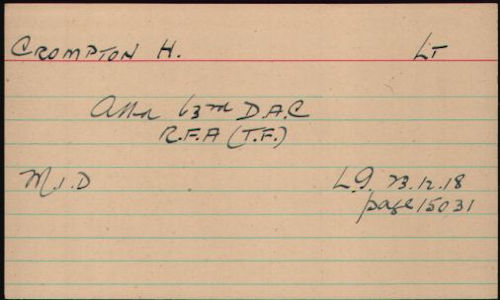 CROMPTON H. LT
Attd 63rd D.A.C
R.F.A (T.F.)
M.I.D L.G. 23.12.18
page 15031